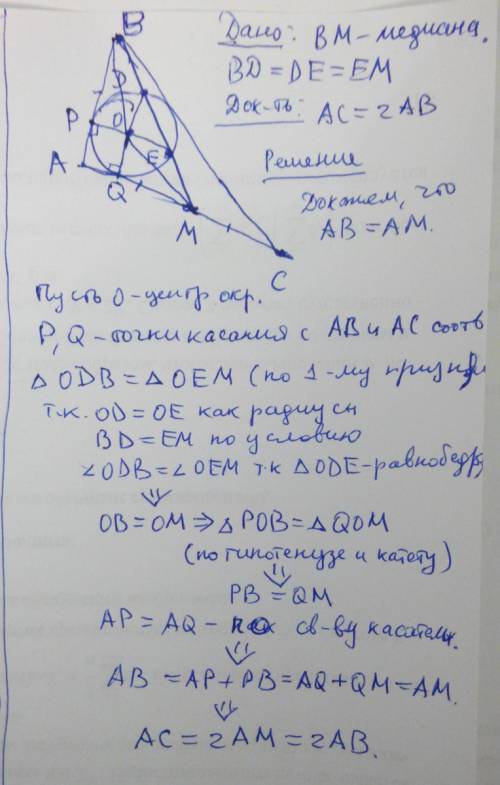 B
Дано: BM-медиана.
D
BD = DE = EM
P
O
Док-ть: AC = 2AB
E
A
Решение
Q
Докажем, что
M
AB = AM.
C
Пусть O-центр окр.
P, Q-точки касания с AB и AC соотв
△ ODB = △ OEM (по 1-му
т.к. OD = OE как радиусы
BD = EM по условию
∠ODB = ∠OEM т.к △ODE-равнобедр
⇓
OB = OM ⇒ △POB = △QOM
(по гипотенузе и катету)
⇓
PB = QM
AP = AQ - по св-ву касательн.
⇓
AB = AP + PB = AQ + QM = AM.
⇓
AC = 2AM = 2AB.